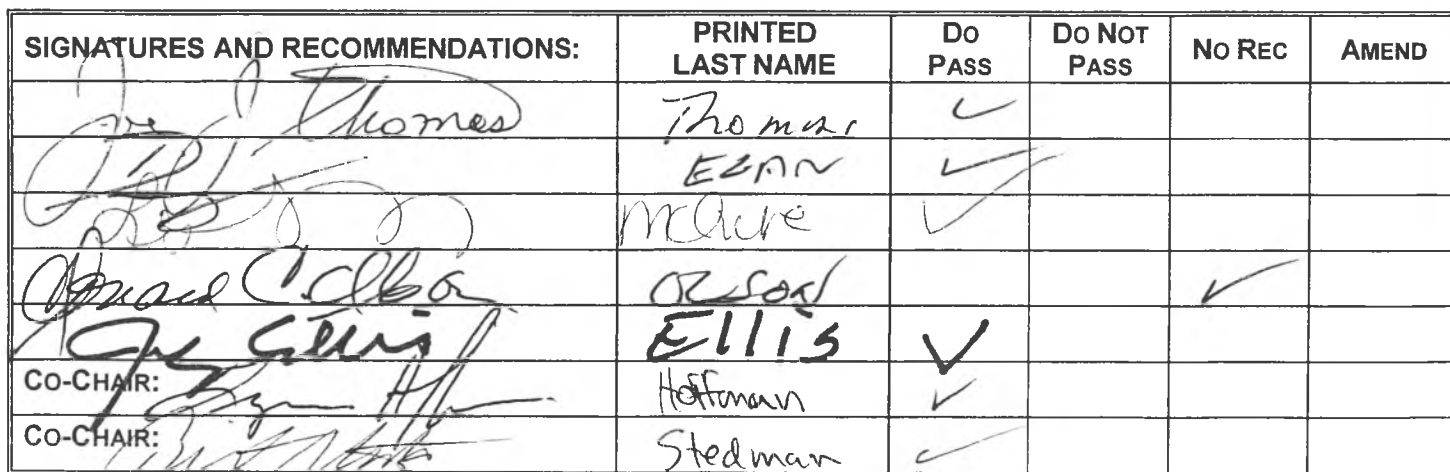 SIGNATURES AND RECOMMENDATIONS: PRINTED LAST NAME DO PASS DO NOT PASS NO REC AMEND
Joe J Thomas Thomas ✓
✓
✓
Donald C. Olson OLSON ✓
Ellis Ellis ✓
CO-CHAIR: Hoffmann ✓
CO-CHAIR: Stedman ✓